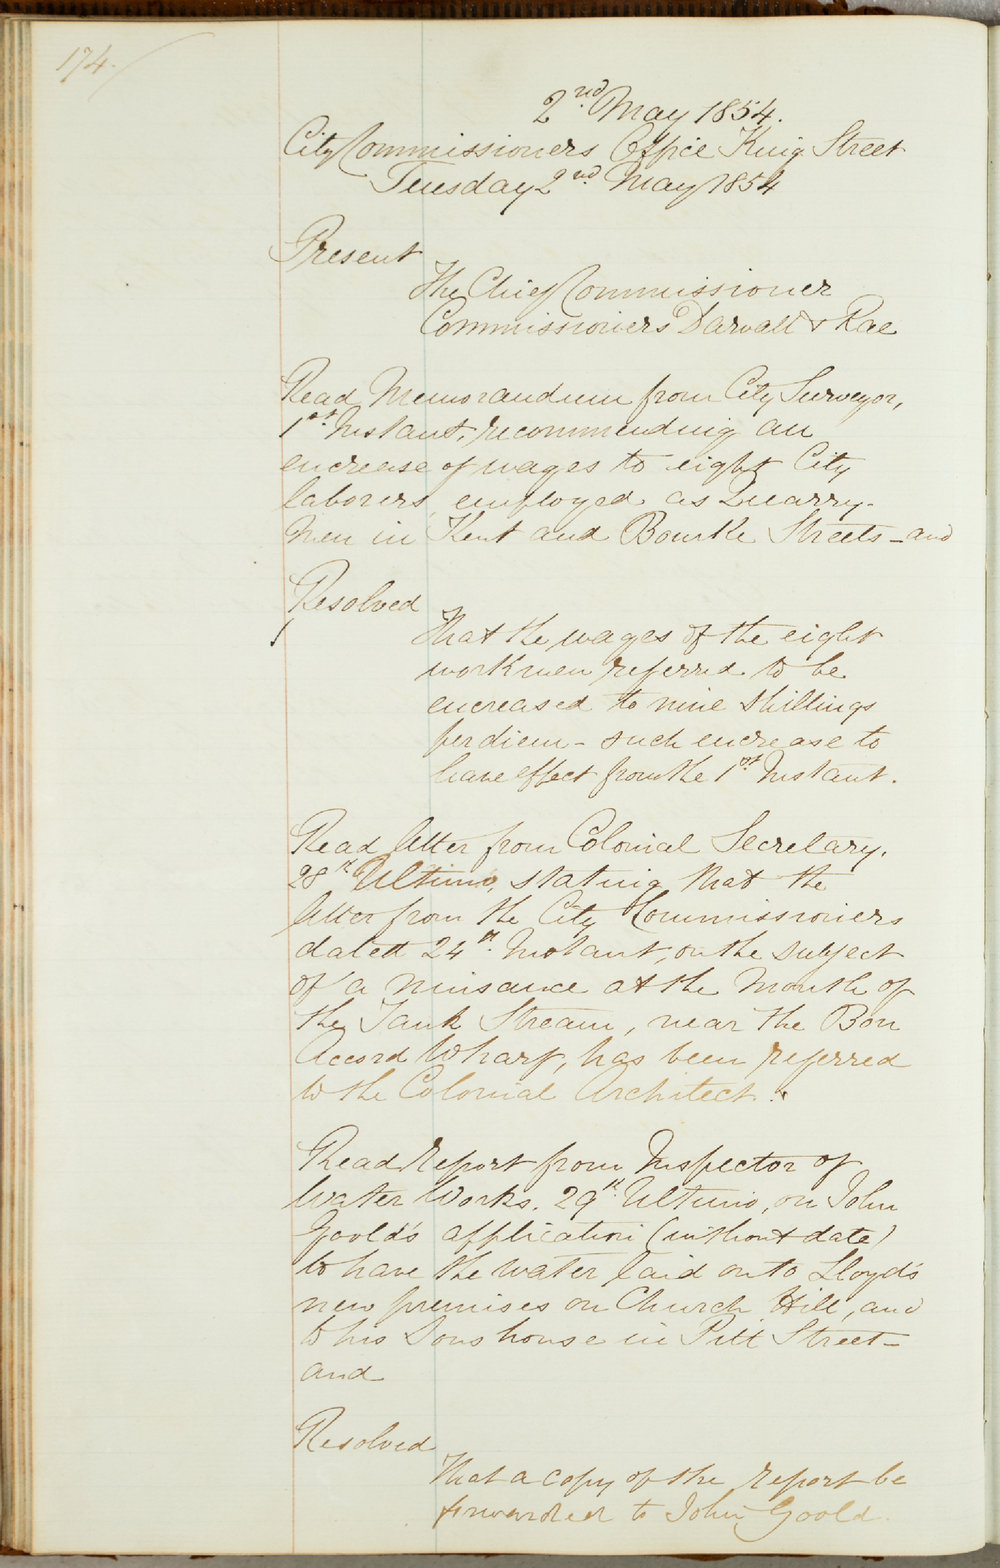 174.
2nd May 1854.
City Commissioners Office King Street
Tuesday 2nd May 1854
Present
The Chief Commissioner
Commissioners Darvall & Rae
Read Memorandum from City Surveyor,
1st Instant, recommending an
encrease of wages to eight City
laborers employed as Quarry-
men in Kent and Bourke Streets - and
Resolved
That the wages of the eight
workmen referred to be
encreased to nine shillings
per diem - such encrease to
have effect from the 1st Instant.
Read letter from Colonial Secretary,
28th Ultimo, stating that the
letter from the City Commissioners
dated 24th Instant, on the subject
of a nuisance at the Mouth of
the Tank Stream, near the Bon
Accord Wharf, has been referred
to the Colonial Architect.
Read report from Inspector of
Water Works, 29th Ultimo, on John
Goold's application (without date)
to have the water laid on to Lloyd's
new premises on Church Hill, and
to his Sons house in Pitt Street -
and
Resolved
That a copy of the report be
forwarded to John Goold.